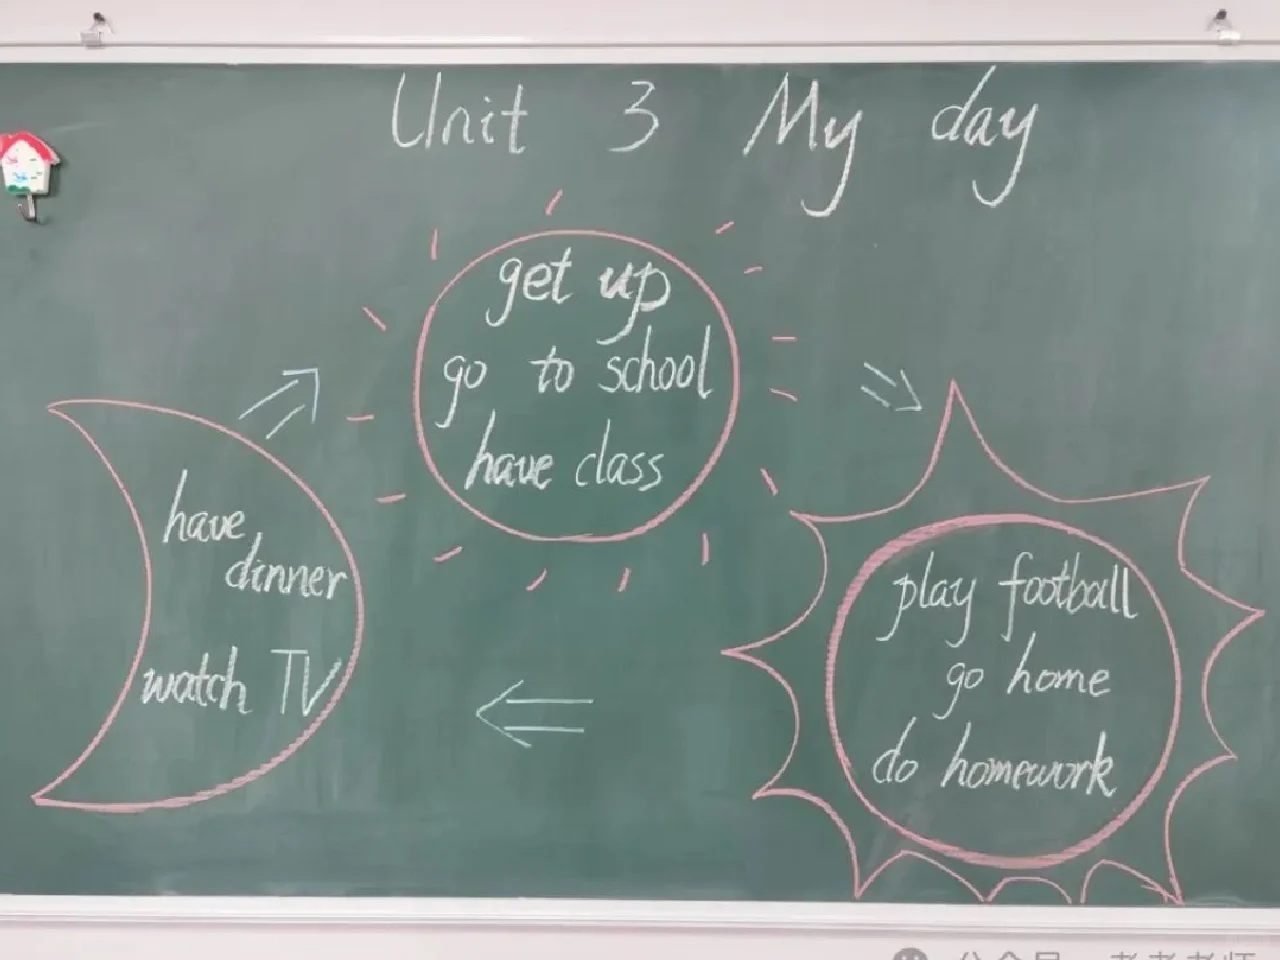 Unit 3 My day
get up
go to school
have class
play football
go home
do homework
have
dinner
watch TV